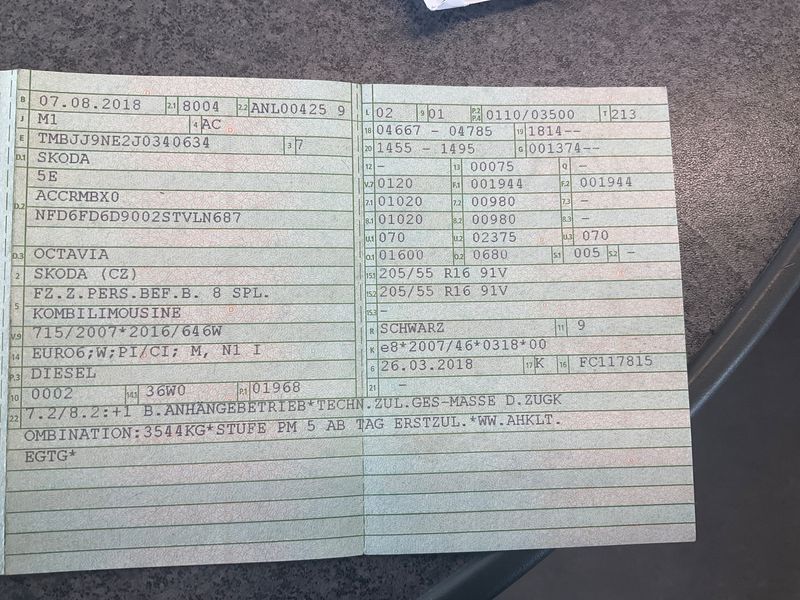 B 07.08.2018 2.1 8004 2.2 ANL00425 9
J M1 4 AC
E TMBJJ9NE2J0340634 3 7
D.1 SKODA
5E
D.2 ACCRMBX0
NFD6FD6D9002STVLN687
D.3 OCTAVIA
2 SKODA (CZ)
5 FZ.Z.PERS.BEF.B. 8 SPL.
KOMBILIMOUSINE
V.9 715/2007*2016/646W
14 EURO6;W;PI/CI; M, N1 I
P.3 DIESEL
10 0002 14.1 36W0 P.1 01968
L 02 9 01 P.2 P.4 0110/03500 T 213
18 04667 - 04785 19 1814--
20 1455 - 1495 G 001374--
12 - 13 00075 Q -
V.7 0120 F.1 001944 F.2 001944
7.1 01020 7.2 00980 7.3 -
8.1 01020 8.2 00980 8.3 -
U.1 070 U.2 02375 U.3 070
O.1 01600 O.2 0680 S.1 005 S.2 -
15.1 205/55 R16 91V
15.2 205/55 R16 91V
15.3 -
R SCHWARZ 11 9
K e8*2007/46*0318*00
6 26.03.2018 17 K 16 FC117815
21 -
22 7.2/8.2:+1 B.ANHÄNGEBETRIEB*TECHN.ZUL.GES-MASSE D.ZUGK
OMBINATION:3544KG*STUFE PM 5 AB TAG ERSTZUL.*WW.AHKLT.
EGTG*